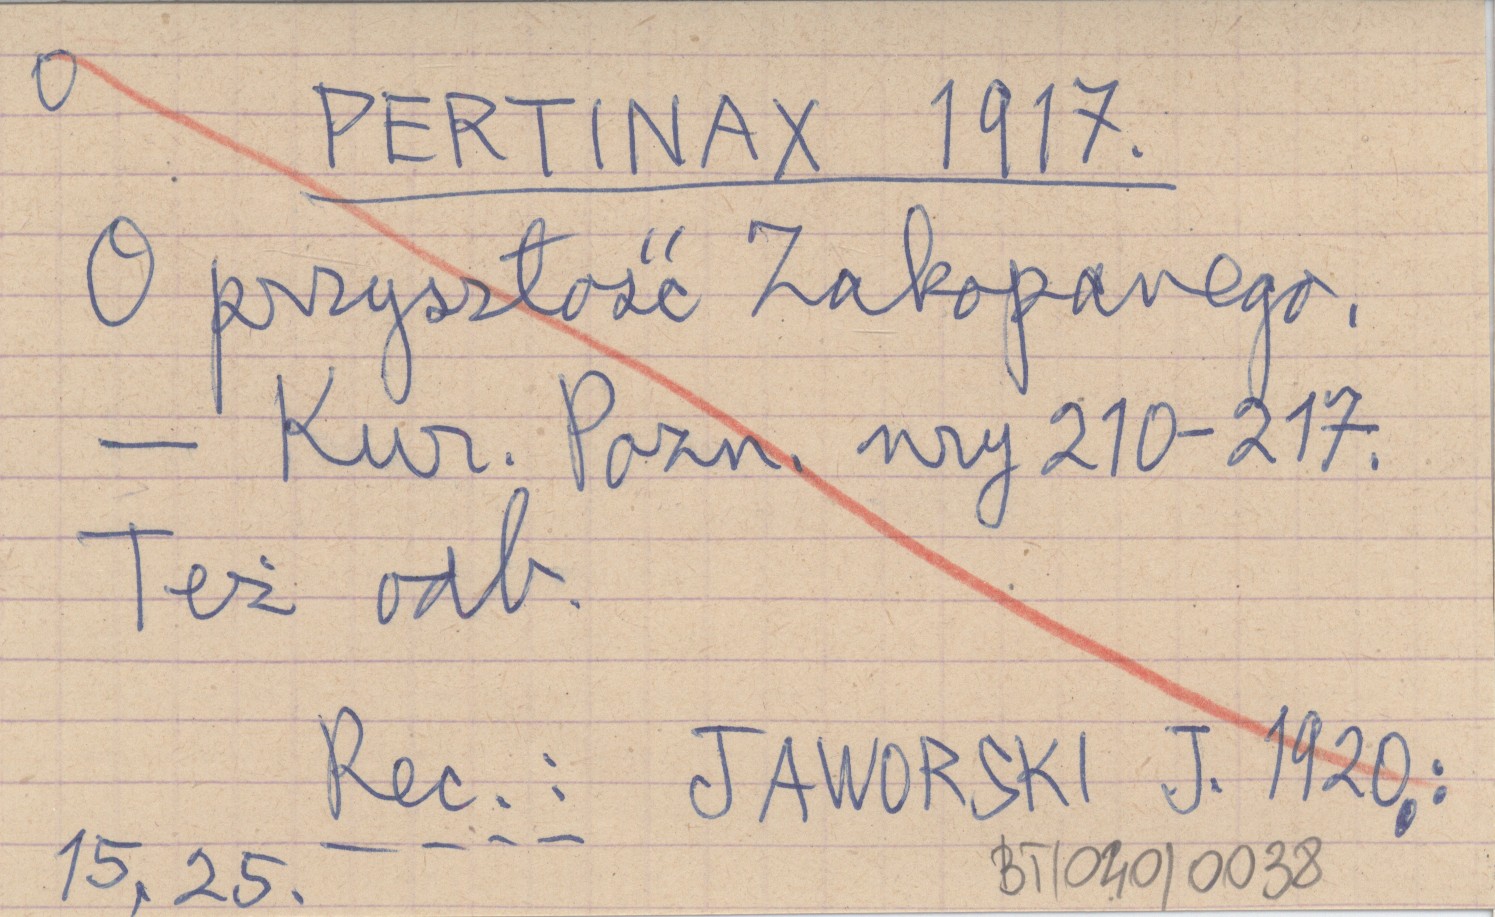 O
PERTINAX 1917.
O przyszłość Zakopanego.
— Kur. Pozn. nry 210-217.
Też odb.
Rec.: JAWORSKI J. 1920,:
15, 25.
BT/040/0038